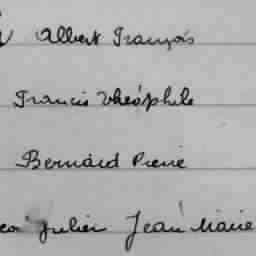 Albert François
Francis Théophile
Bernard Pierre
Julien Jean Marie